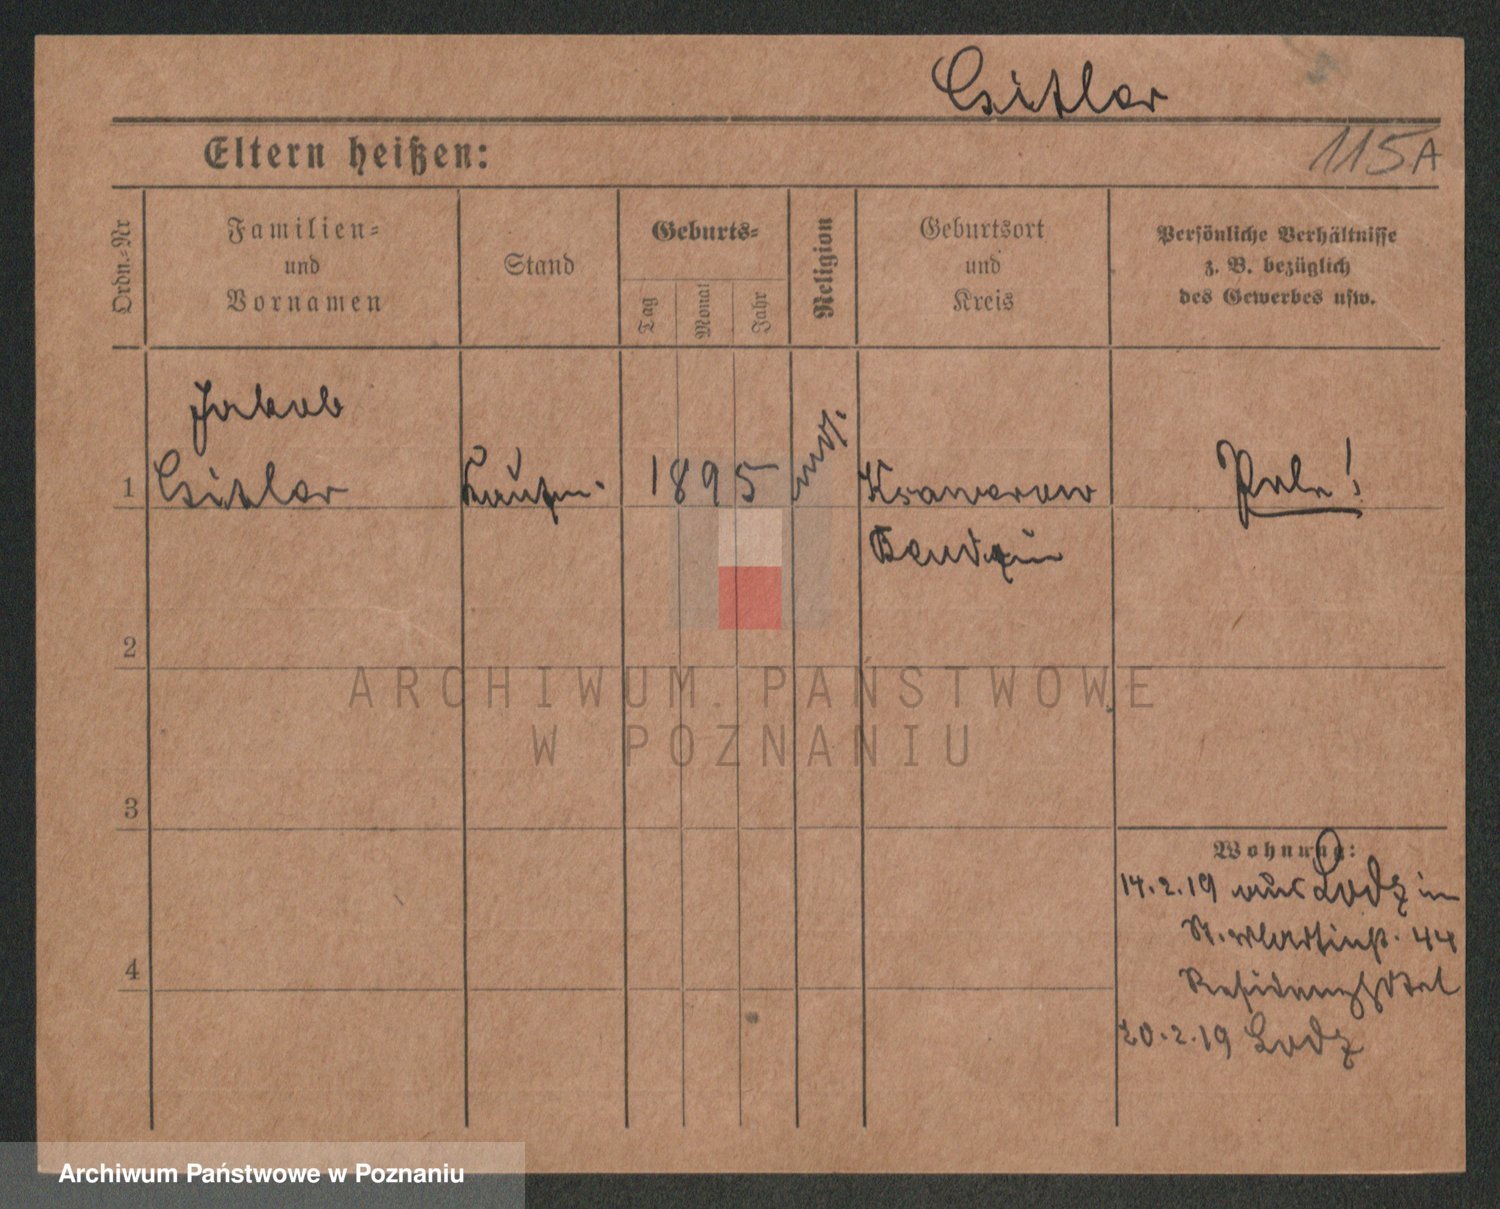 Csitler
115A
Eltern heißen:
Ordn.-Nr
Familien-
und
Vornamen
Stand
Geburts-
Tag
Monat
Jahr
Religion
Geburtsort
und
Kreis
Persönliche Verhältnisse
z. B. bezüglich
des Gewerbes usw.
Jakob
1 Csitler Kaufm. 1895 Pole!
Bendzin
2
3
4
Wohnung:
14.2.19 aus Lodz in
St. Martinst. 44
Residenzhotel
20.2.19 Lodz
ARCHIWUM PAŃSTWOWE
W POZNANIU
Archiwum Państwowe w Poznaniu